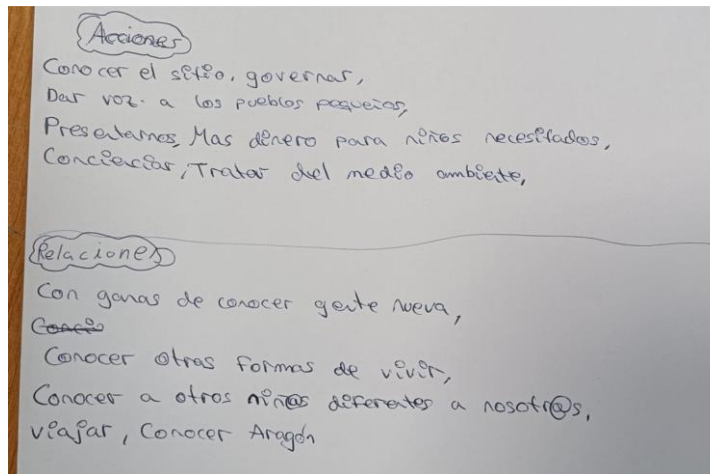 Acciones
Conocer el sitio, governar,
Dar voz. a los pueblos pequeños,
Presentarnos, Mas dinero para niños necesitados,
Concienciar, Tratar del medio ambiente,
Relaciones
Con ganas de conocer gente nueva,
Conocer otras formas de vivir,
Conocer a otros niñ@s diferentes a nosotr@s,
viajar, Conocer Aragón